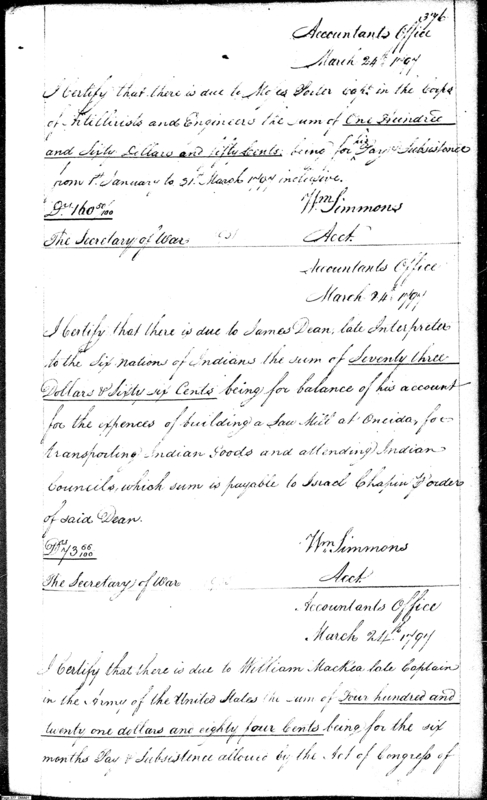 376
Accountants Office
March 24th 1797
I Certify that there is due to Moses Porter Capt. in the Corps
of Artillerists and Engineers the sum of One Hundred
and Sixty Dollars and fifty Cents, being for his Pay & Subsistance
from 1st January to 31st March 1797 inclusive.
Drs 160 50/100
Wm Simmons
The Secretary of War
Acct.
Accountants Office
March 24th 1797
I Certify that there is due to James Dean, late Interpreter
to the six nations of Indians the sum of Seventy three
Dollars & Sixty six Cents being for balance of his account
for the expences of building a Saw Mill at Oneida, for
transporting Indian Goods and attending Indian
Councils, which sum is payable to Israel Chapin Order
of said Dean.
Drs 73 66/100
Wm Simmons
The Secretary of War
Acct
Accountants Office
March 24th 1797
I Certify that there is due to William MacKea late Captain
in the Army of the United States the sum of Four hundred and
twenty one dollars and eighty four Cents being for the six
months Pay & Subsistence allowed by the Act of Congress of